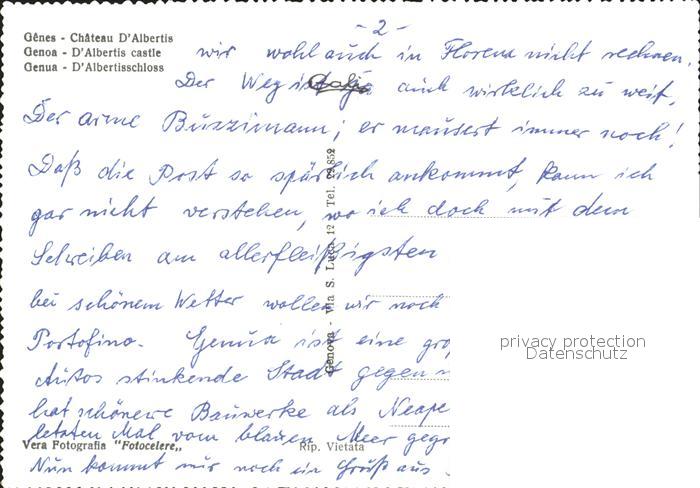 - 2 -
Gênes - Château D'Albertis
Genoa - D'Albertis castle
Genua - D'Albertisschloss
wir wohl auch in Florenz nicht rechnen.
Der Weg ist ja auch wirklich zu weit.
Der arme Buzzimann; er mausert immer noch!
Daß die Post so spärlich ankommt, kann ich
gar nicht verstehen, wo ich doch mit dem
Schreiben am allerfleißigsten
bei schönem Wetter wollen wir noch
Portofino. Genua ist eine
Autos stinkende Stadt gegen
hat schönere Bauwerke als Neape
letzten Mal vom blauen Meer
Nun kommt nur noch ein Gruß aus
Vera Fotografia "Fotocelere„
Rip. Vietata
Genova - Via S. Luca, 12 - Tel. 22.852
privacy protection
Datenschutz